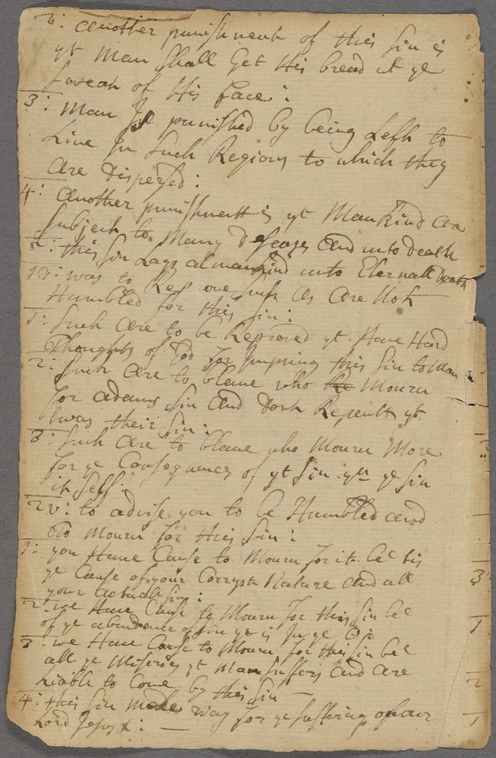 2: another punishment of this sin is
yt Man shall Get His bread it ye
Sweat of His face:
3: Man Is punished by being Left to
Live In such Regions to which they
are Dispersed:
4: another punishment is yt Mankind are
subject to Many Diseases and unto Death
5: this Sin Lays al mankind unto Eternall Death
was to Reprove such as are Not
Humbled for this sin:
1: Such are to be Reproved yt Have Hard
thoughts of God for Imputing this Sin to Man
2: Such are to blame who Mourn
for adams sin and Dont Repent yt
was their sin:
3: Such are to blame who Mourn More
for ye Consequences of yt Sin yn ye sin
it self:
2 v: to advise you to be Humbled and
to Mourn for this sin:
1: you Have Cause to Mourn for it bec tis
ye Cause of your Corrupt Nature and all
your actual sin:
2: we Have Cause to Mourn for this sin bec
of ye abundance of sin yt is In ye
3: we Have Cause to Mourn for this sin bec
all ye Miseries yt Man suffers and are
Liable to Come by this sin
4: this Sin Made way for ye suffering of our
Lord Jesus: